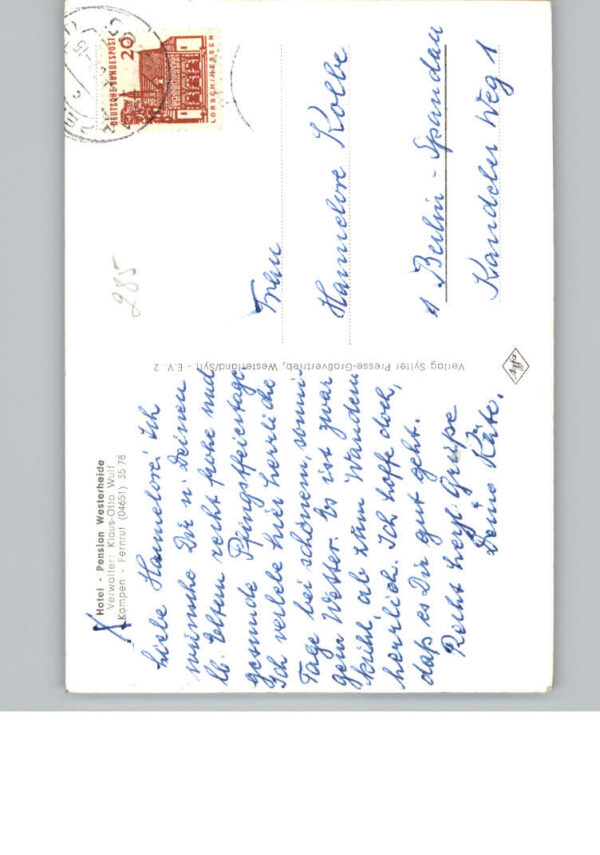 Hotel - Pension Westerheide
Verwalter: Klaus-Otto Wulf
Kampen - Fernruf (04651) 35 78
Liebe Hannelore! Ich
wünsche Dir u. Deinen
lb. Eltern recht frohe und
gesunde Pfingstfeiertage
Ich verlebe hier herrliche
Tage bei schönem, sonni-
gem Wetter. Es ist zwar
kühl ab zum Wandern
herrlich. Ich hoffe doch,
daß es Dir gut geht.
Recht herzl. Grüße
Deine Käte.
Verlag Sylter Presse-Großvertrieb, Westerland/Sylt - E.V. 2
285
DEUTSCHE BUNDESPOST
20
LORSCH/HESSEN
Frau
Hannelore Kolbe
1 Berlin-Spandau
Kandeler Weg 1